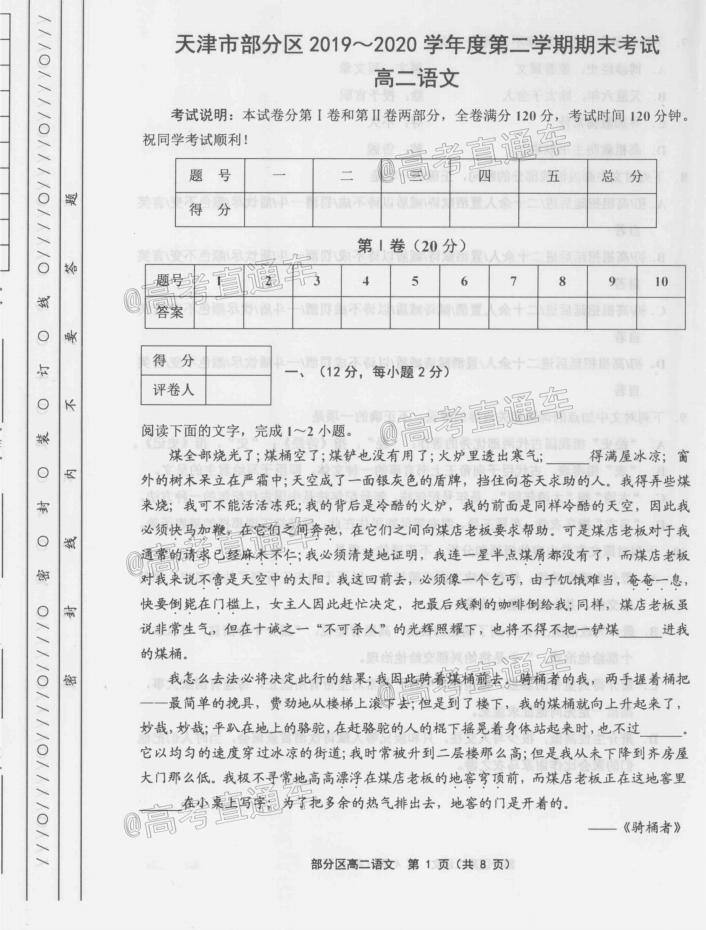 天津市部分区2019～2020学年度第二学期期末考试
高二语文
考试说明：本试卷分第Ⅰ卷和第Ⅱ卷两部分，全卷满分120分，考试时间120分钟。
祝同学考试顺利！
题 号 一 二 三 四 五 总 分
得 分
第Ⅰ卷（20分）
题号 1 2 3 4 5 6 7 8 9 10
答案
得 分
评卷人
一、（12分，每小题2分）
阅读下面的文字，完成1～2小题。
煤全部烧光了；煤桶空了；煤铲也没有用了；火炉里透出寒气；____得满屋冰凉；窗
外的树木呆立在严霜中；天空成了一面银灰色的盾牌，挡住向苍天求助的人。我得弄些煤
来烧；我可不能活活冻死；我的背后是冷酷的火炉，我的前面是同样冷酷的天空，因此我
必须快马加鞭，在它们之间奔驰，在它们之间向煤店老板要求帮助。可是煤店老板对于我
通常的请求已经麻木不仁；我必须清楚地证明，我连一星半点煤屑都没有了，而煤店老板
对我来说不啻是天空中的太阳。我这回前去，必须像一个乞丐，由于饥饿难当，奄奄一息，
快要倒毙在门槛上，女主人因此赶忙决定，把最后残剩的咖啡倒给我；同样，煤店老板虽
说非常生气，但在十诫之一“不可杀人”的光辉照耀下，也将不得不把一铲煤____进我
的煤桶。
我怎么去法必将决定此行的结果；我因此骑着煤桶前去。骑桶者的我，两手握着桶把
——最简单的挽具，费劲地从楼梯上滚下去；但是到了楼下，我的煤桶就向上升起来了，
妙哉，妙哉；平趴在地上的骆驼，在赶骆驼的人的棍下摇晃着身体站起来时，也不过____。
它以均匀的速度穿过冰凉的街道；我时常被升到二层楼那么高；但是我从未下降到齐房屋
大门那么低。我极不寻常地高高漂浮在煤店老板的地窖穹顶前，而煤店老板正在这地窖里
____在小桌上写字，为了把多余的热气排出去，地窖的门是开着的。
——《骑桶者》
部分区高二语文 第1页（共8页）
密 封 线 内 不 要 答 题
///////○//////○密○//////○封○//////○装○//////○订○//////○线○///////
@高考直通车
@高考直通车
@高考直通车
@高考直通车
@高考直通车
@高考直通车